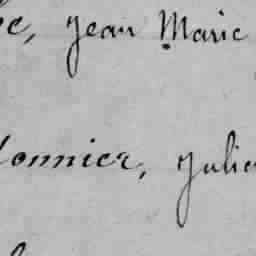 Jean Marie
onnier, Julie